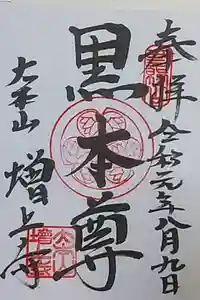 奉拝 令和元年八月九日
黒本尊
大本山 増上寺